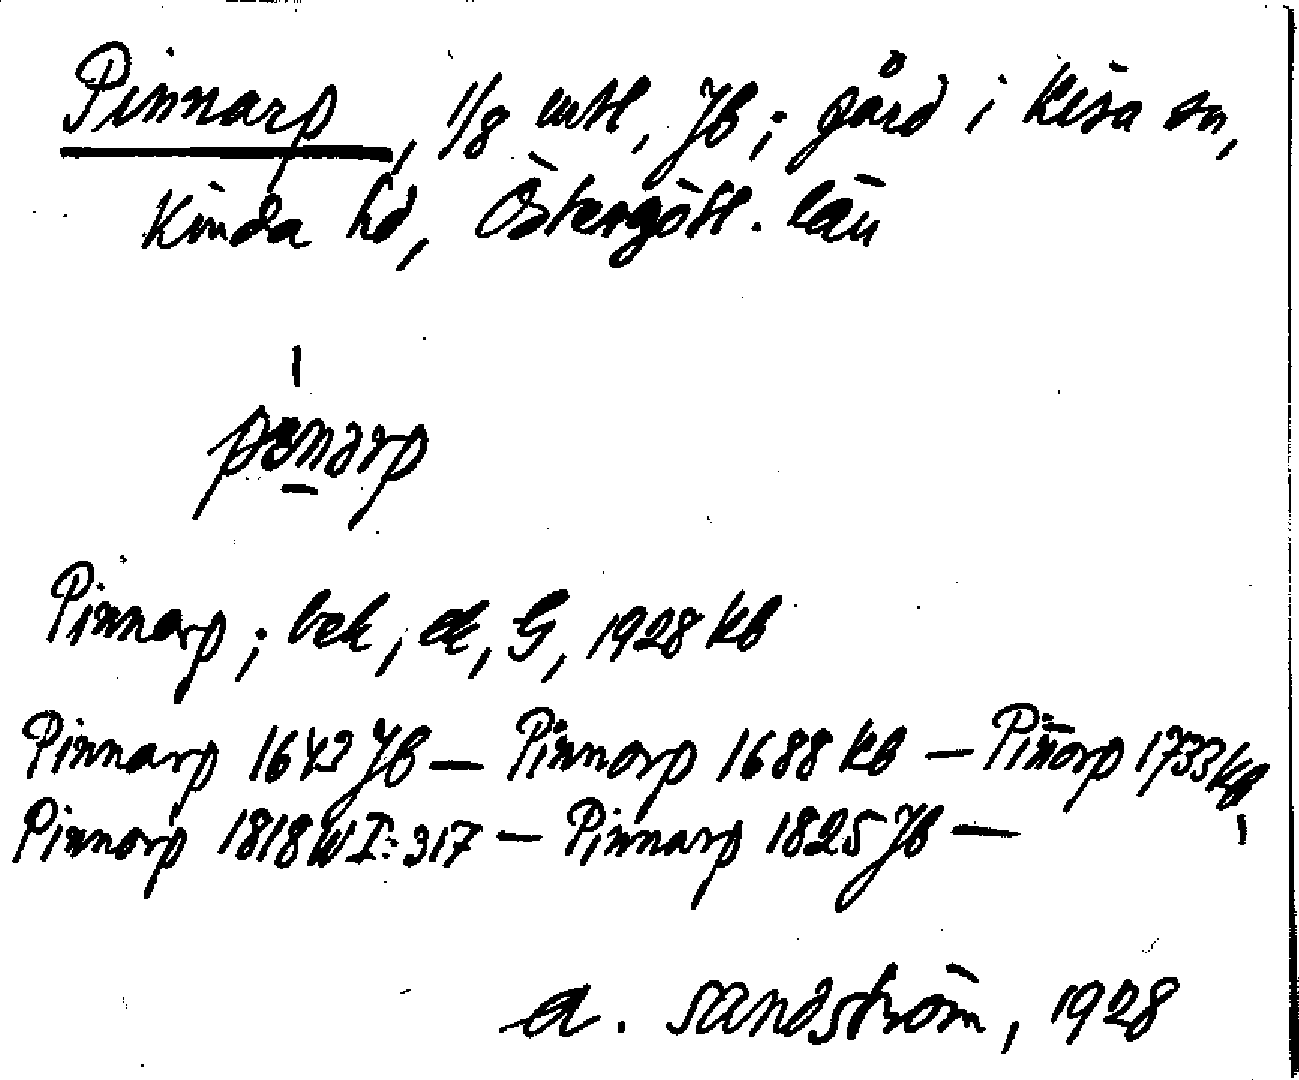 Pinnarp, 1/8 mtl, Jb; gård i Kisa sn,
Kinda hd, Östergötl. län
Pinnarp; bek, A, G, 1928 kb
Pinnarp 1643 Jb — Pinnorp 1688 kb — Pin̄orp 1733 kb
Pinnorp 1818 W I:317 — Pinnarp 1825 Jb —
A. Sandström, 1928